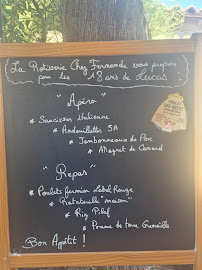 La Rotisserie Chez Fernande vous propose
pour les 18 ans de Lucas :
"Apéro"
* Saucisses Italienne
* Andouillettes 5A
* Jambonneaux de Porc
* Magret de Canard
"Repas"
* Poulets fermier Label Rouge
* Ratatouille "maison"
* Riz Pilaf
* Pomme de terre Grenaille
Bon Appétit !